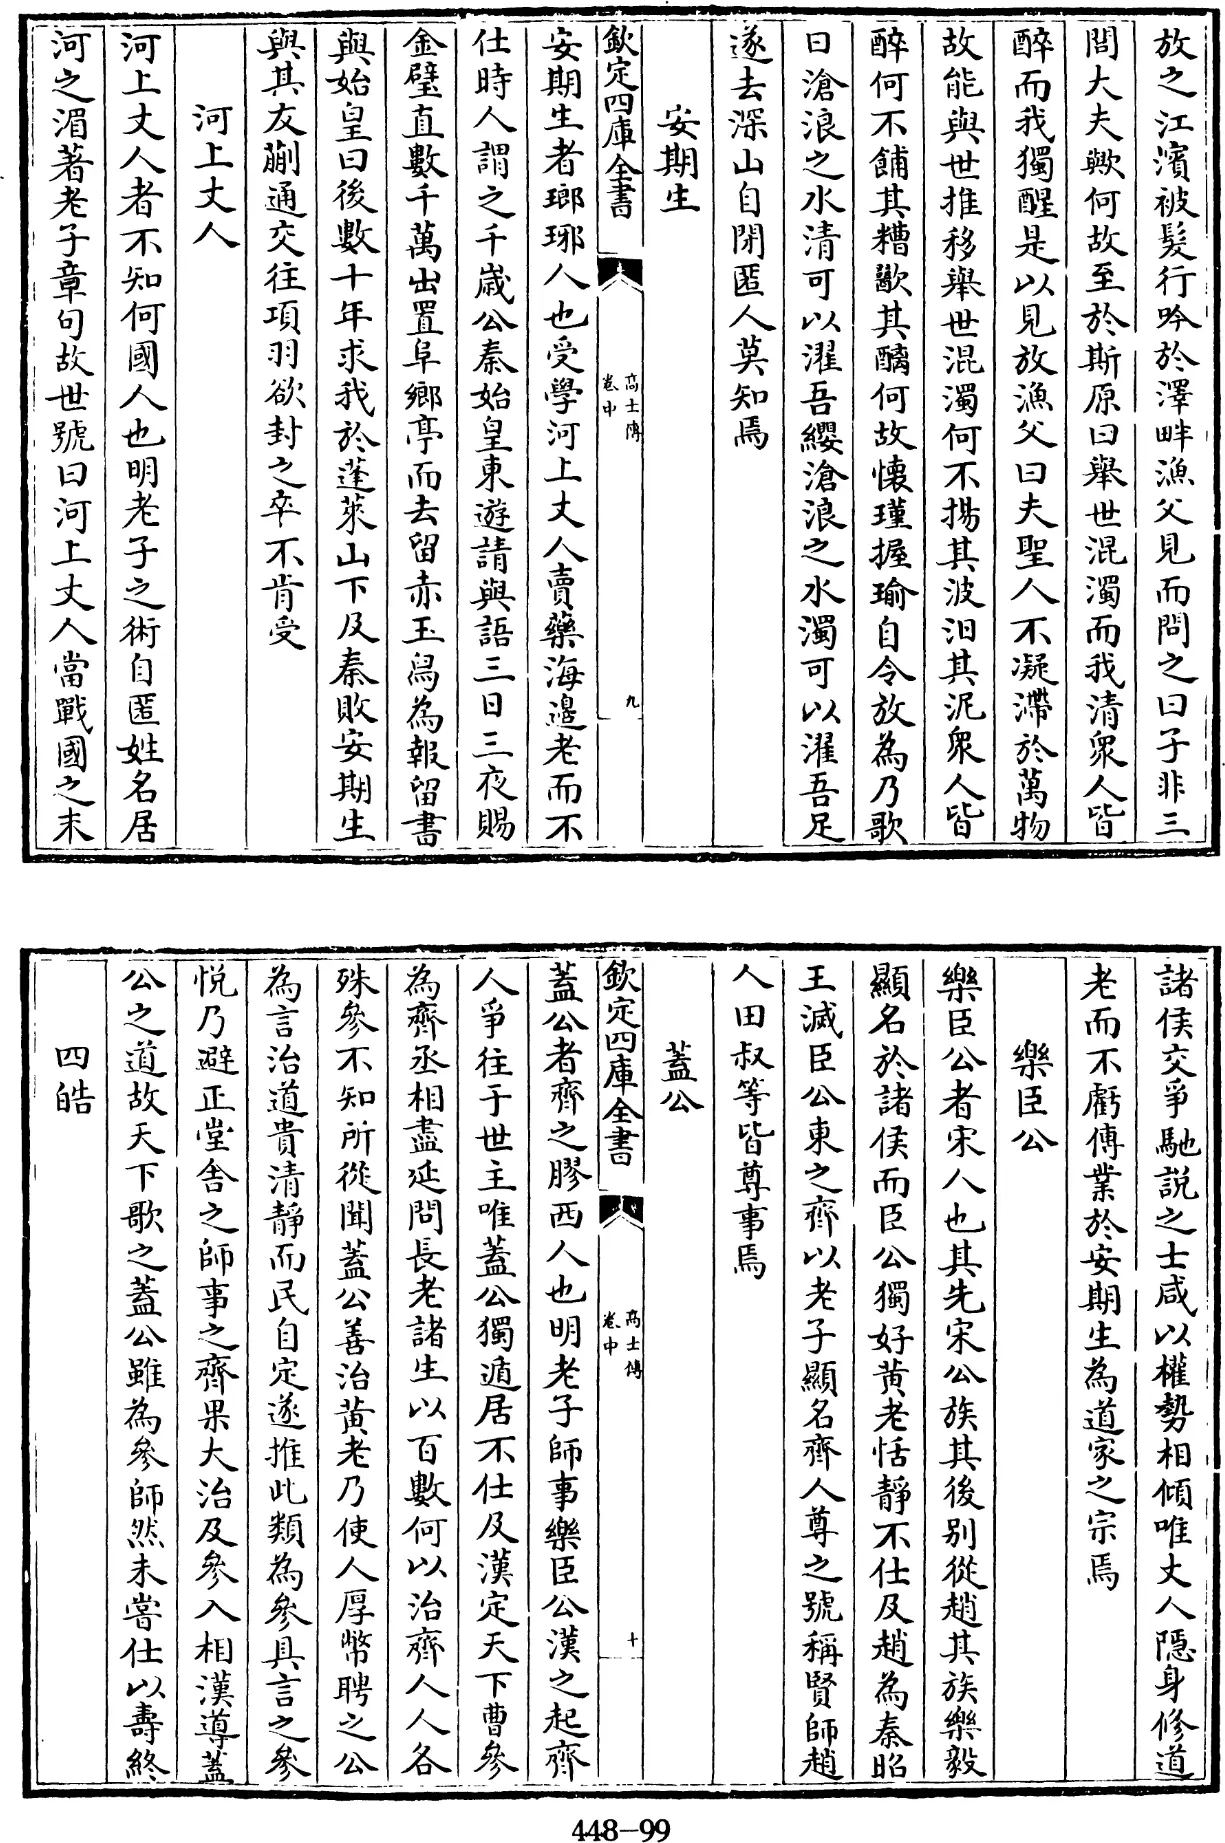 放之江濱被髮行吟於澤畔漁父見而問之曰子非三
閭大夫歟何故至於斯原曰舉世混濁而我清衆人皆
醉而我獨醒是以見放漁父曰夫聖人不凝滯於萬物
故能與世推移舉世混濁何不揚其波汨其泥衆人皆
醉何不餔其糟歠其醨何故懷瑾握瑜自令放為乃歌
曰滄浪之水清可以濯吾纓滄浪之水濁可以濯吾足
遂去深山自閉匿人莫知焉
安期生
欽定四庫全書
高士傳
卷中
九
安期生者瑯琊人也受學河上丈人賣藥海邊老而不
仕時人謂之千歲公秦始皇東遊請與語三日三夜賜
金璧直數千萬出置阜鄉亭而去留赤玉舄為報留書
與始皇曰後數十年求我於蓬萊山下及秦敗安期生
與其友蒯通交往項羽欲封之卒不肯受
河上丈人
河上丈人者不知何國人也明老子之術自匿姓名居
河之湄著老子章句故世號曰河上丈人當戰國之末
諸侯交爭馳説之士咸以權勢相傾唯丈人隱身修道
老而不虧傳業於安期生為道家之宗焉
樂臣公
樂臣公者宋人也其先宋公族其後别從趙其族樂毅
顯名於諸侯而臣公獨好黄老恬靜不仕及趙為秦昭
王滅臣公東之齊以老子顯名齊人尊之號稱賢師趙
人田叔等皆尊事焉
蓋公
欽定四庫全書
高士傳
卷中
十
蓋公者齊之膠西人也明老子師事樂臣公漢之起齊
人爭往于世主唯蓋公獨遁居不仕及漢定天下曹參
為齊丞相盡延問長老諸生以百數何以治齊人人各
殊參不知所從聞蓋公善治黄老乃使人厚幣聘之公
為言治道貴清靜而民自定遂推此類為參具言之參
悦乃避正堂舍之師事之齊果大治及參入相漢導蓋
公之道故天下歌之蓋公雖為參師然未嘗仕以壽終
四皓
448-99